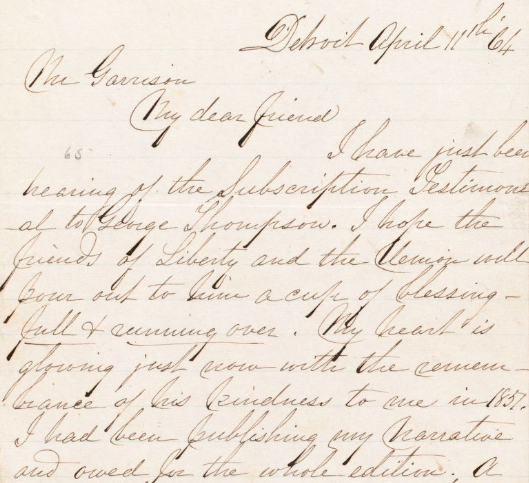 Detroit April 11th 64
Mr Garrison
My dear friend
65
I have just been
hearing of the Subscription Testimoni
-al to George Thompson. I hope the
friends of Liberty and the Union will
pour out to him a cup of blessing-
full & running over. My heart is
glowing just now with the remem-
brance of his kindness to me in 1851.
I had been publishing my Narrative
and owed for the whole edition. A